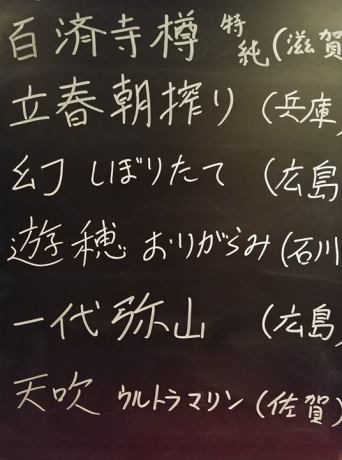 百済寺樽 特純(滋賀
立春朝搾り(兵庫
幻 しぼりたて (広島
遊穂 おりがらみ(石川
一代弥山 (広島
天吹 ウルトラマリン(佐賀)